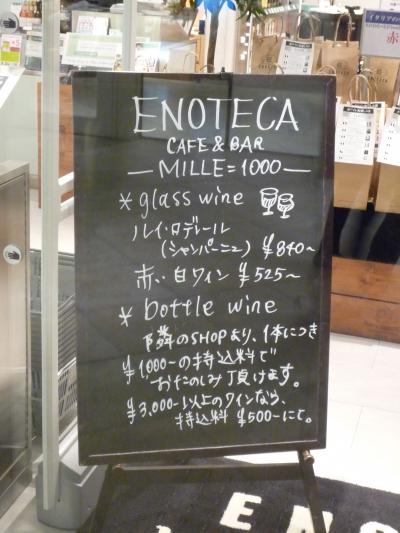 ENOTECA
CAFE & BAR
—MILLE=1000—
* glass wine
ルイ・ロデレール
(シャンパーニュ) ¥840~
赤・白ワイン ¥525~
* bottle wine
隣のSHOPより、1本につき
¥1,000-の持込料で
おたのしみ頂けます。
¥3,000-以上のワインなら、
持込料 ¥500-にて。
ENO
イタリア
赤